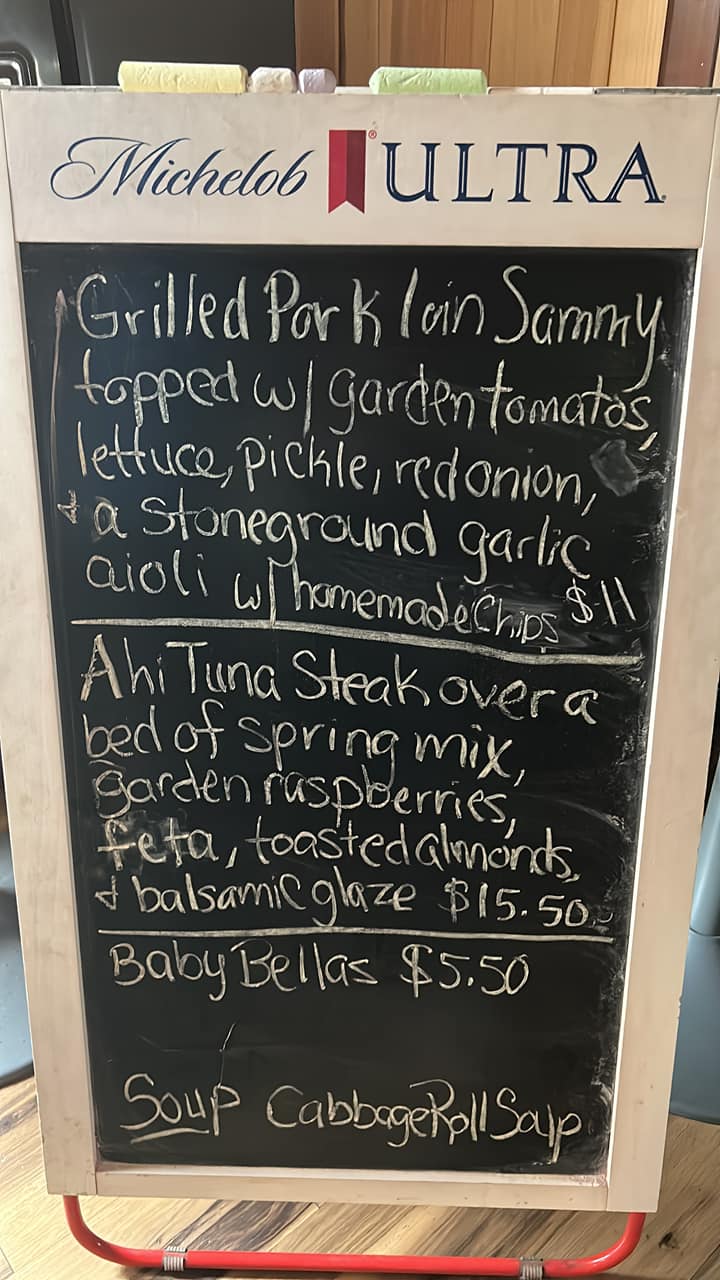 Michelob ULTRA
Grilled Pork loin Sammy
topped w/ garden tomatos,
lettuce, pickle, red onion,
& a stoneground garlic
aioli w/ homemade Chips $11
Ahi Tuna Steak over a
bed of spring mix,
garden raspberries,
feta, toasted almonds,
& balsamic glaze $15.50
Baby Bellas $5.50
Soup Cabbage Roll Soup